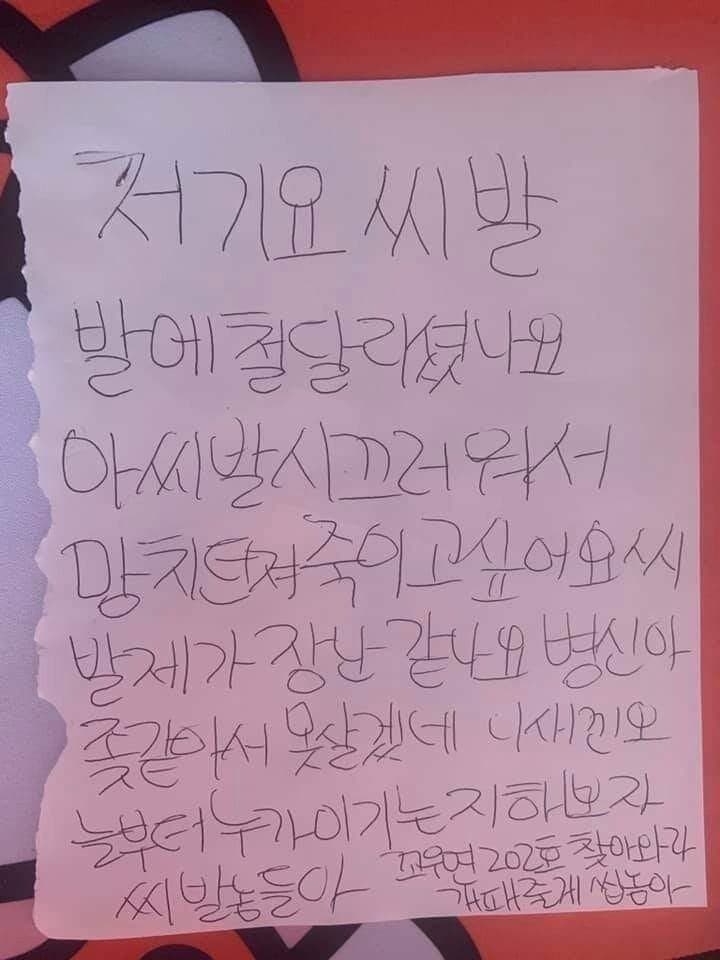 저기요 씨발
발에철달라셨나요
아씨발시끄러워서
망치던져죽이고싶어요씨
발제가 장난 같나요 병신아
좆같아서 못살겠네 니새낀오
늘부터누가이기는지해보자
씨발놈들아
202호 찾아와라
개패줄게 씹놈아